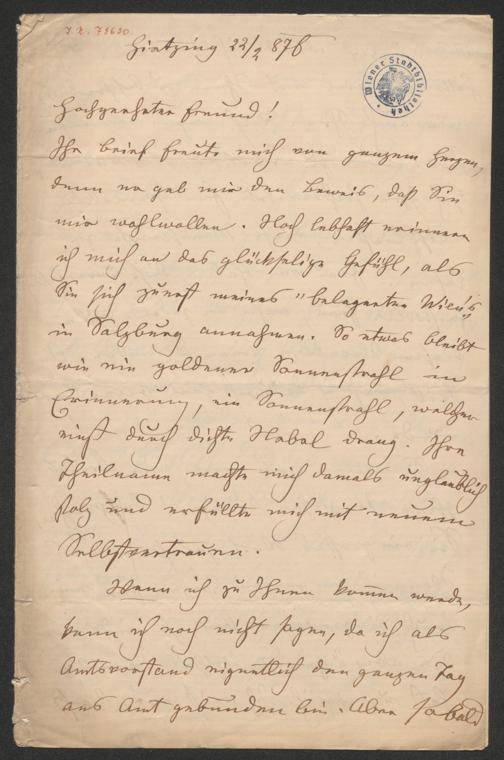 J. N. 79620
Hietzing 22/2 876
Wiener Stadtbibliothek
Hochgeehrter Freund!
Ihr Brief freute mich von ganzem Herzen,
denn er gab mir den Beweis, daß Sie
mir wohlwollen. Noch lebhaft erinnere
ich mich an das glückselige Gefühl, als
Sie sich zuerst meines "belagerten Wien's"
in Salzburg annahmen. So etwas bleibt
wie ein goldener Sonnenstrahl in
Erinnerung, ein Sonnenstrahl, welcher
einst durch dichte Nebel drang. Ihre
Theilname machte mich damals unglaublich
stolz und erfüllte mich mit neuem
Selbstvertrauen.
Wann ich zu Ihnen kommen werde,
kann ich noch nicht sagen, da ich als
Amtsvorstand eigentlich den ganzen Tag
ans Amt gebunden bin. Aber sobald